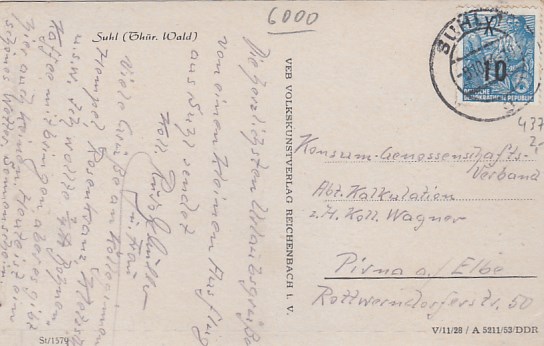 6000
Suhl (Thür. Wald)
Die herzlichsten Urlaubsgrüße
von einem kleinen Ausflug
aus Suhl sendet
Koll.
u. Frau
Viele Grüße an Kolleginnen
Hempel, Rosenkranz,
u.s.w. Ich wollte
Kaffee mitbringen, aber es gibt
hier auch keinen. Heute ist ein
schönes Wetter, Sonnenschein.
St/1579
VEB VOLKSKUNSTVERLAG REICHENBACH i. V.
SUHL
10
DEUTSCHE
DEMOKRATISCHE REPUBLIK
437
Konsum-Genossenschafts-
Verband
Abt. Kalkulation
z.H. Koll. Wagner
Pirna a./Elbe
Rottwerndorferstr. 50
V/11/28 / A 5211/53/DDR